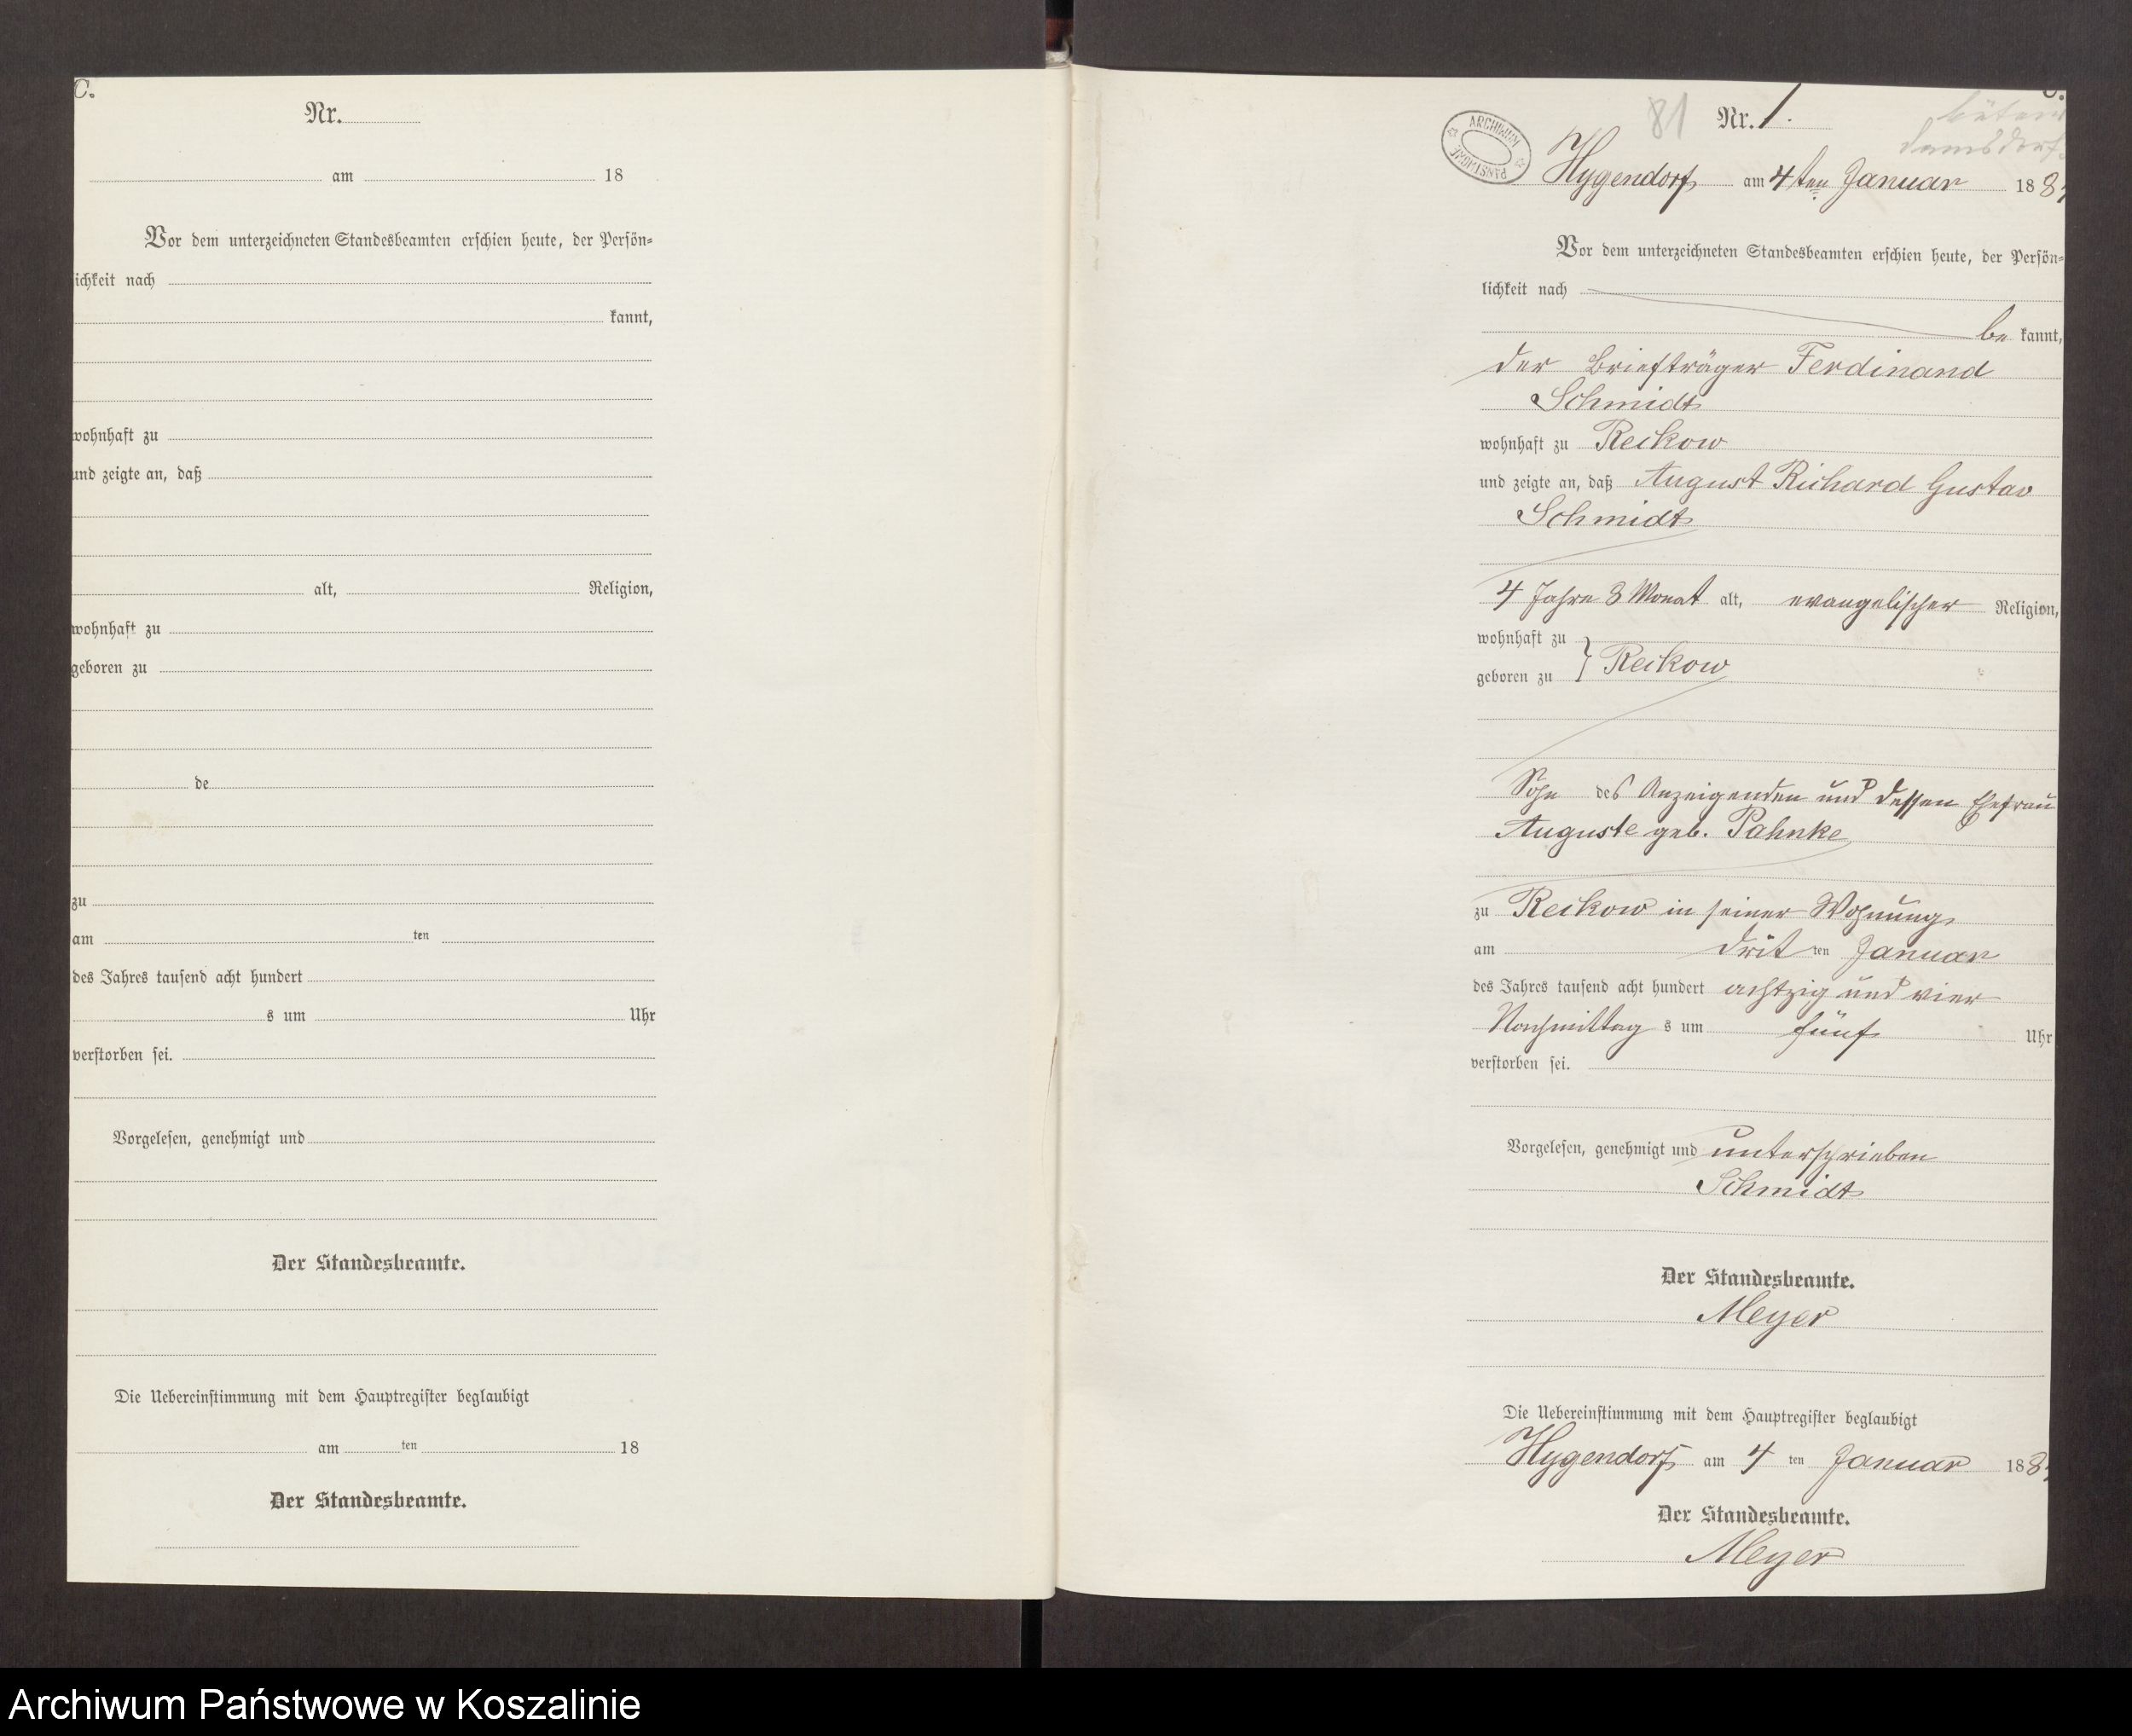 C.
Nr.
am 18
Vor dem unterzeichneten Standesbeamten erschien heute, der Persön=
lichkeit nach
kannt,
wohnhaft zu
und zeigte an, daß
alt, Religion,
wohnhaft zu
geboren zu
de
zu
am ten
des Jahres tausend acht hundert
s um Uhr
verstorben sei.
Vorgelesen, genehmigt und
Der Standesbeamte.
Die Uebereinstimmung mit dem Hauptregister beglaubigt
am ten 18
Der Standesbeamte.
C.
81 Nr. 1.
damsdorf
ARCHIWUM PAŃSTWOWE
Hygendorf am 4ten Januar 188
Vor dem unterzeichneten Standesbeamten erschien heute, der Persön=
lichkeit nach
be kannt,
der Briefträger Ferdinand
Schmidt
wohnhaft zu Reckow
und zeigte an, daß August Richard Gustav
Schmidt
4 Jahre 8 Monat alt, evangelischer Religion,
wohnhaft zu
geboren zu } Reckow
Sohn des Anzeigenden und dessen Ehefrau
Auguste geb. Pahnke
zu Reckow in seiner Wohnung
am drit ten Januar
des Jahres tausend acht hundert achtzig und vier
Nachmittag s um fünf Uhr
verstorben sei.
Vorgelesen, genehmigt und unterschrieben
Schmidt
Der Standesbeamte.
Meyer
Die Uebereinstimmung mit dem Hauptregister beglaubigt
Hygendorf am 4 ten Januar 188
Der Standesbeamte.
Meyer
Archiwum Państwowe w Koszalinie